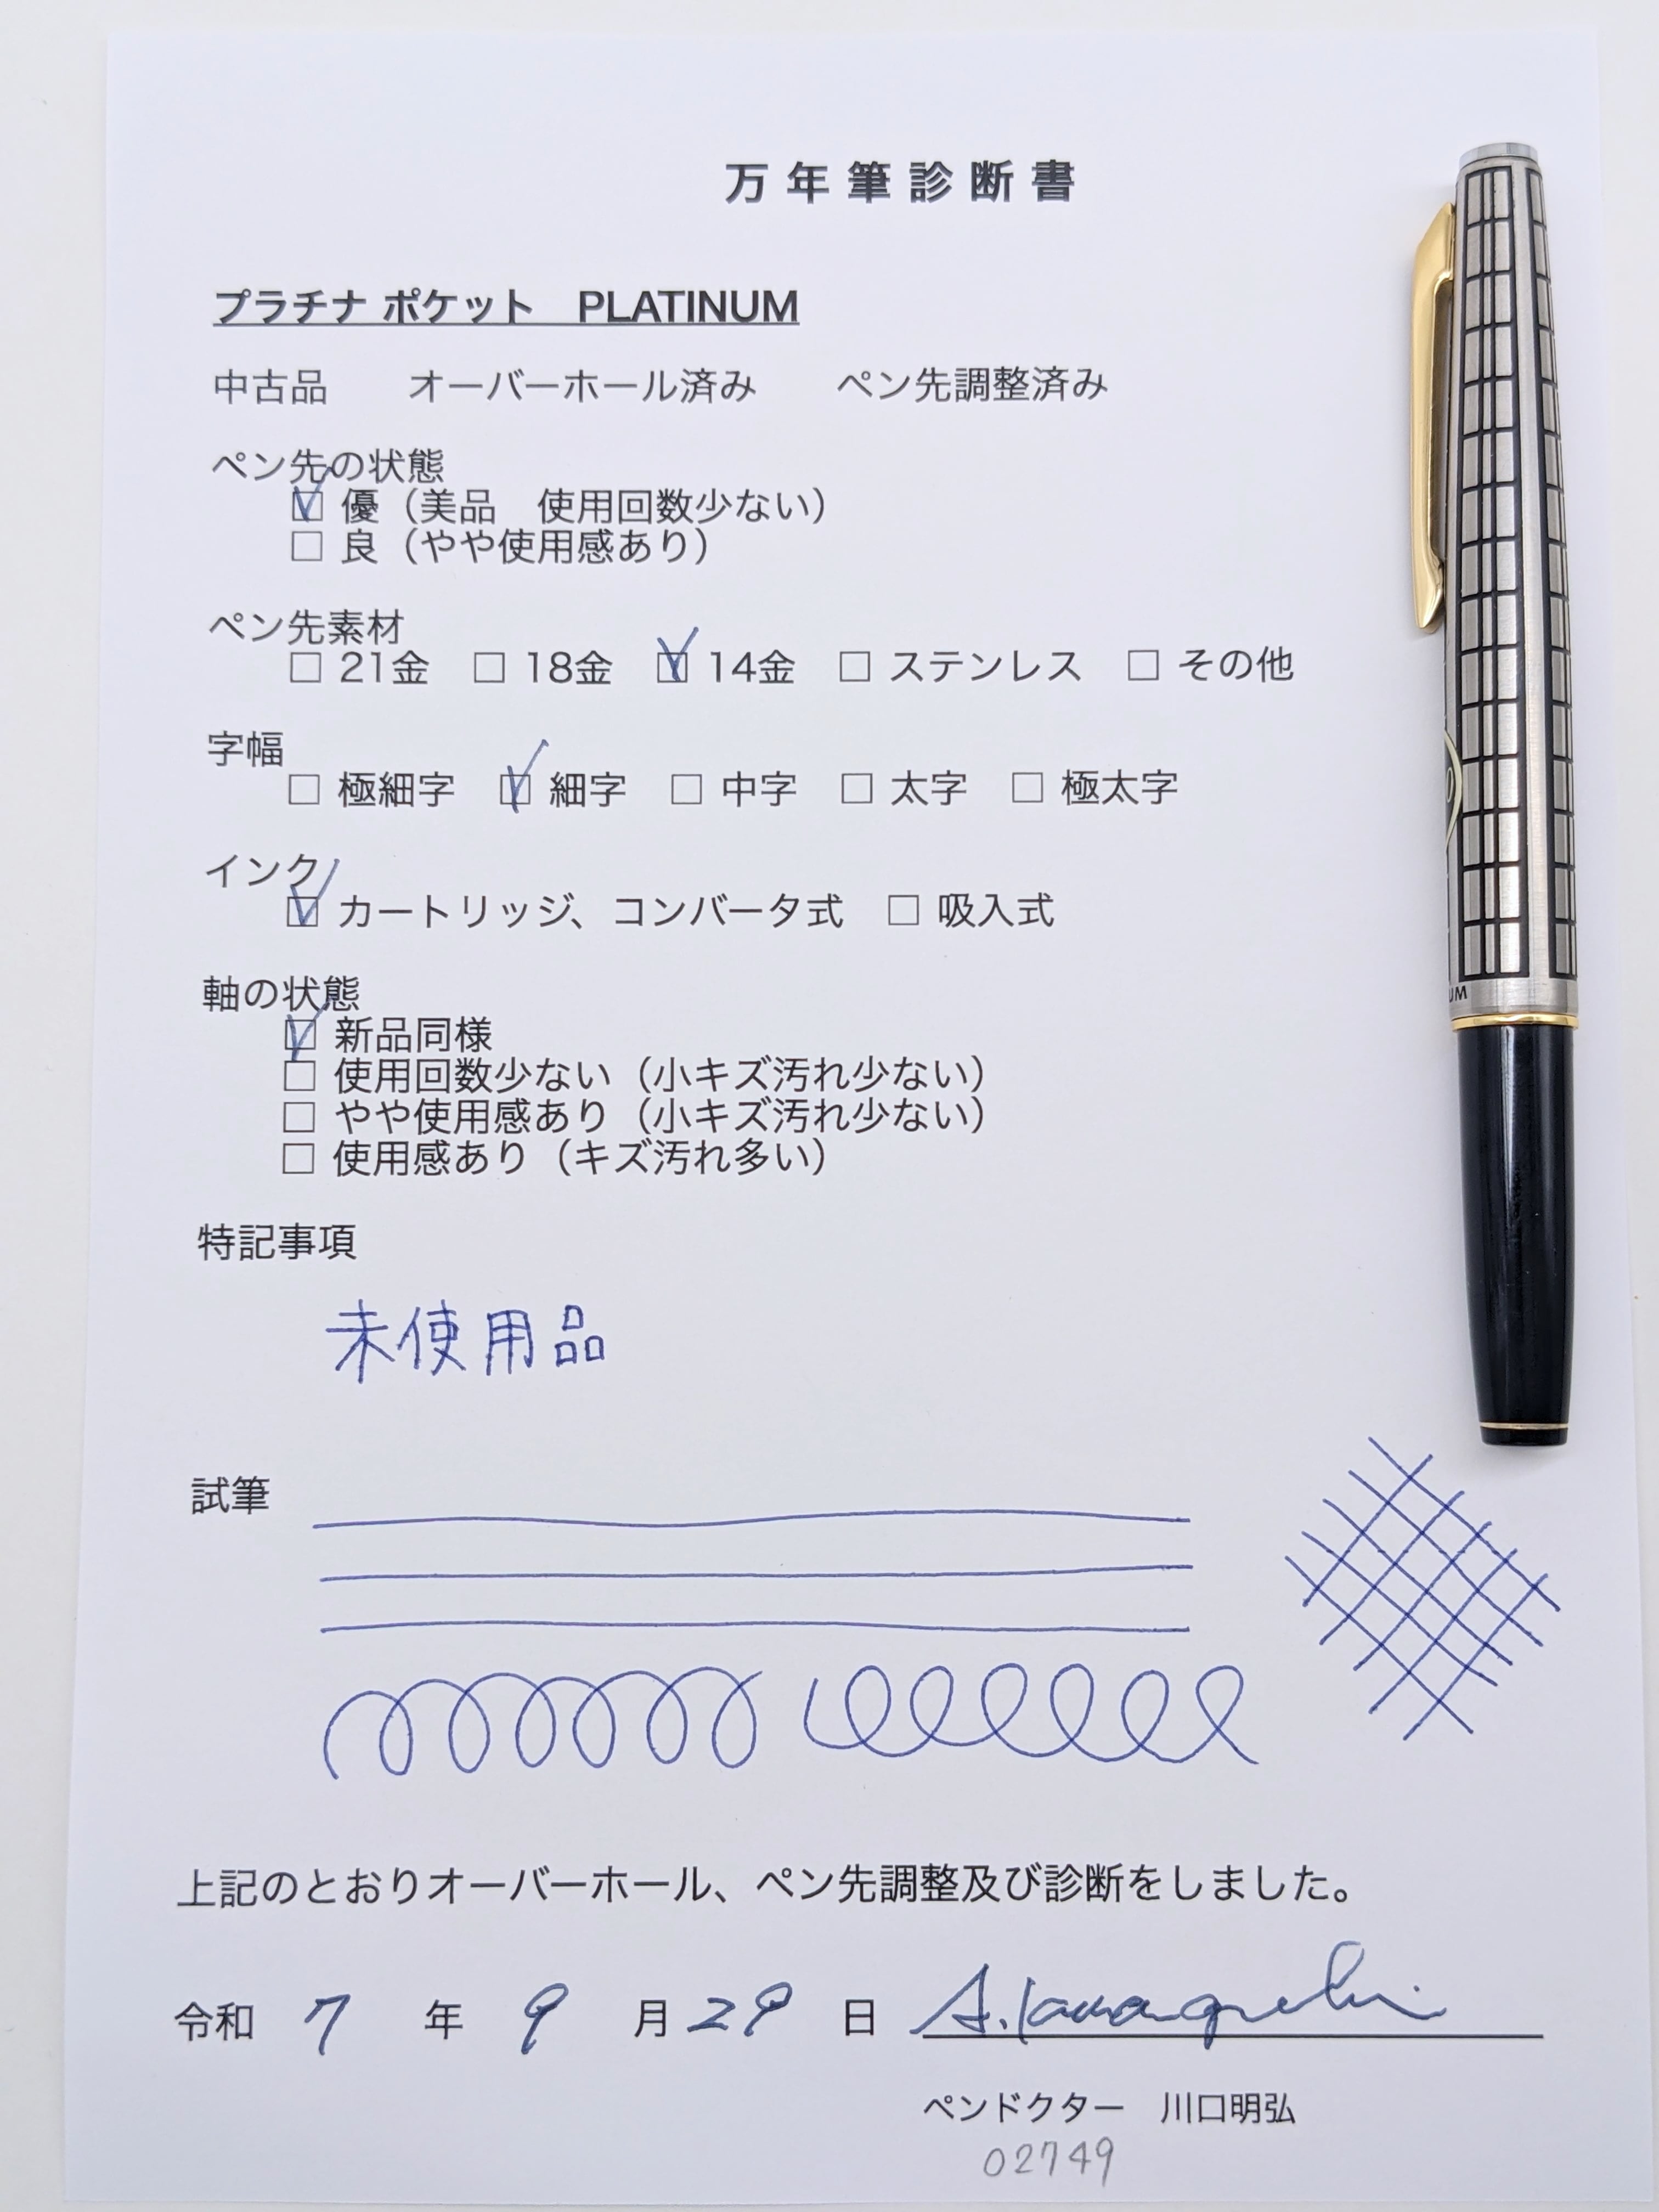 万年筆診断書
プラチナ ポケット　PLATINUM
中古品　　オーバーホール済み　　ペン先調整済み
ペン先の状態
☑ 優（美品　使用回数少ない）
□ 良（やや使用感あり）
ペン先素材
□ 21金　□ 18金　☑ 14金　□ ステンレス　□ その他
字幅
□ 極細字　☑ 細字　□ 中字　□ 太字　□ 極太字
インク
☑ カートリッジ、コンバータ式　□ 吸入式
軸の状態
☑ 新品同様
□ 使用回数少ない（小キズ汚れ少ない）
□ やや使用感あり（小キズ汚れ少ない）
□ 使用感あり（キズ汚れ多い）
特記事項
未使用品
試筆
上記のとおりオーバーホール、ペン先調整及び診断をしました。
令和 7 年 9 月 29 日 A.Kawaguchi
ペンドクター　川口明弘
02749
UM